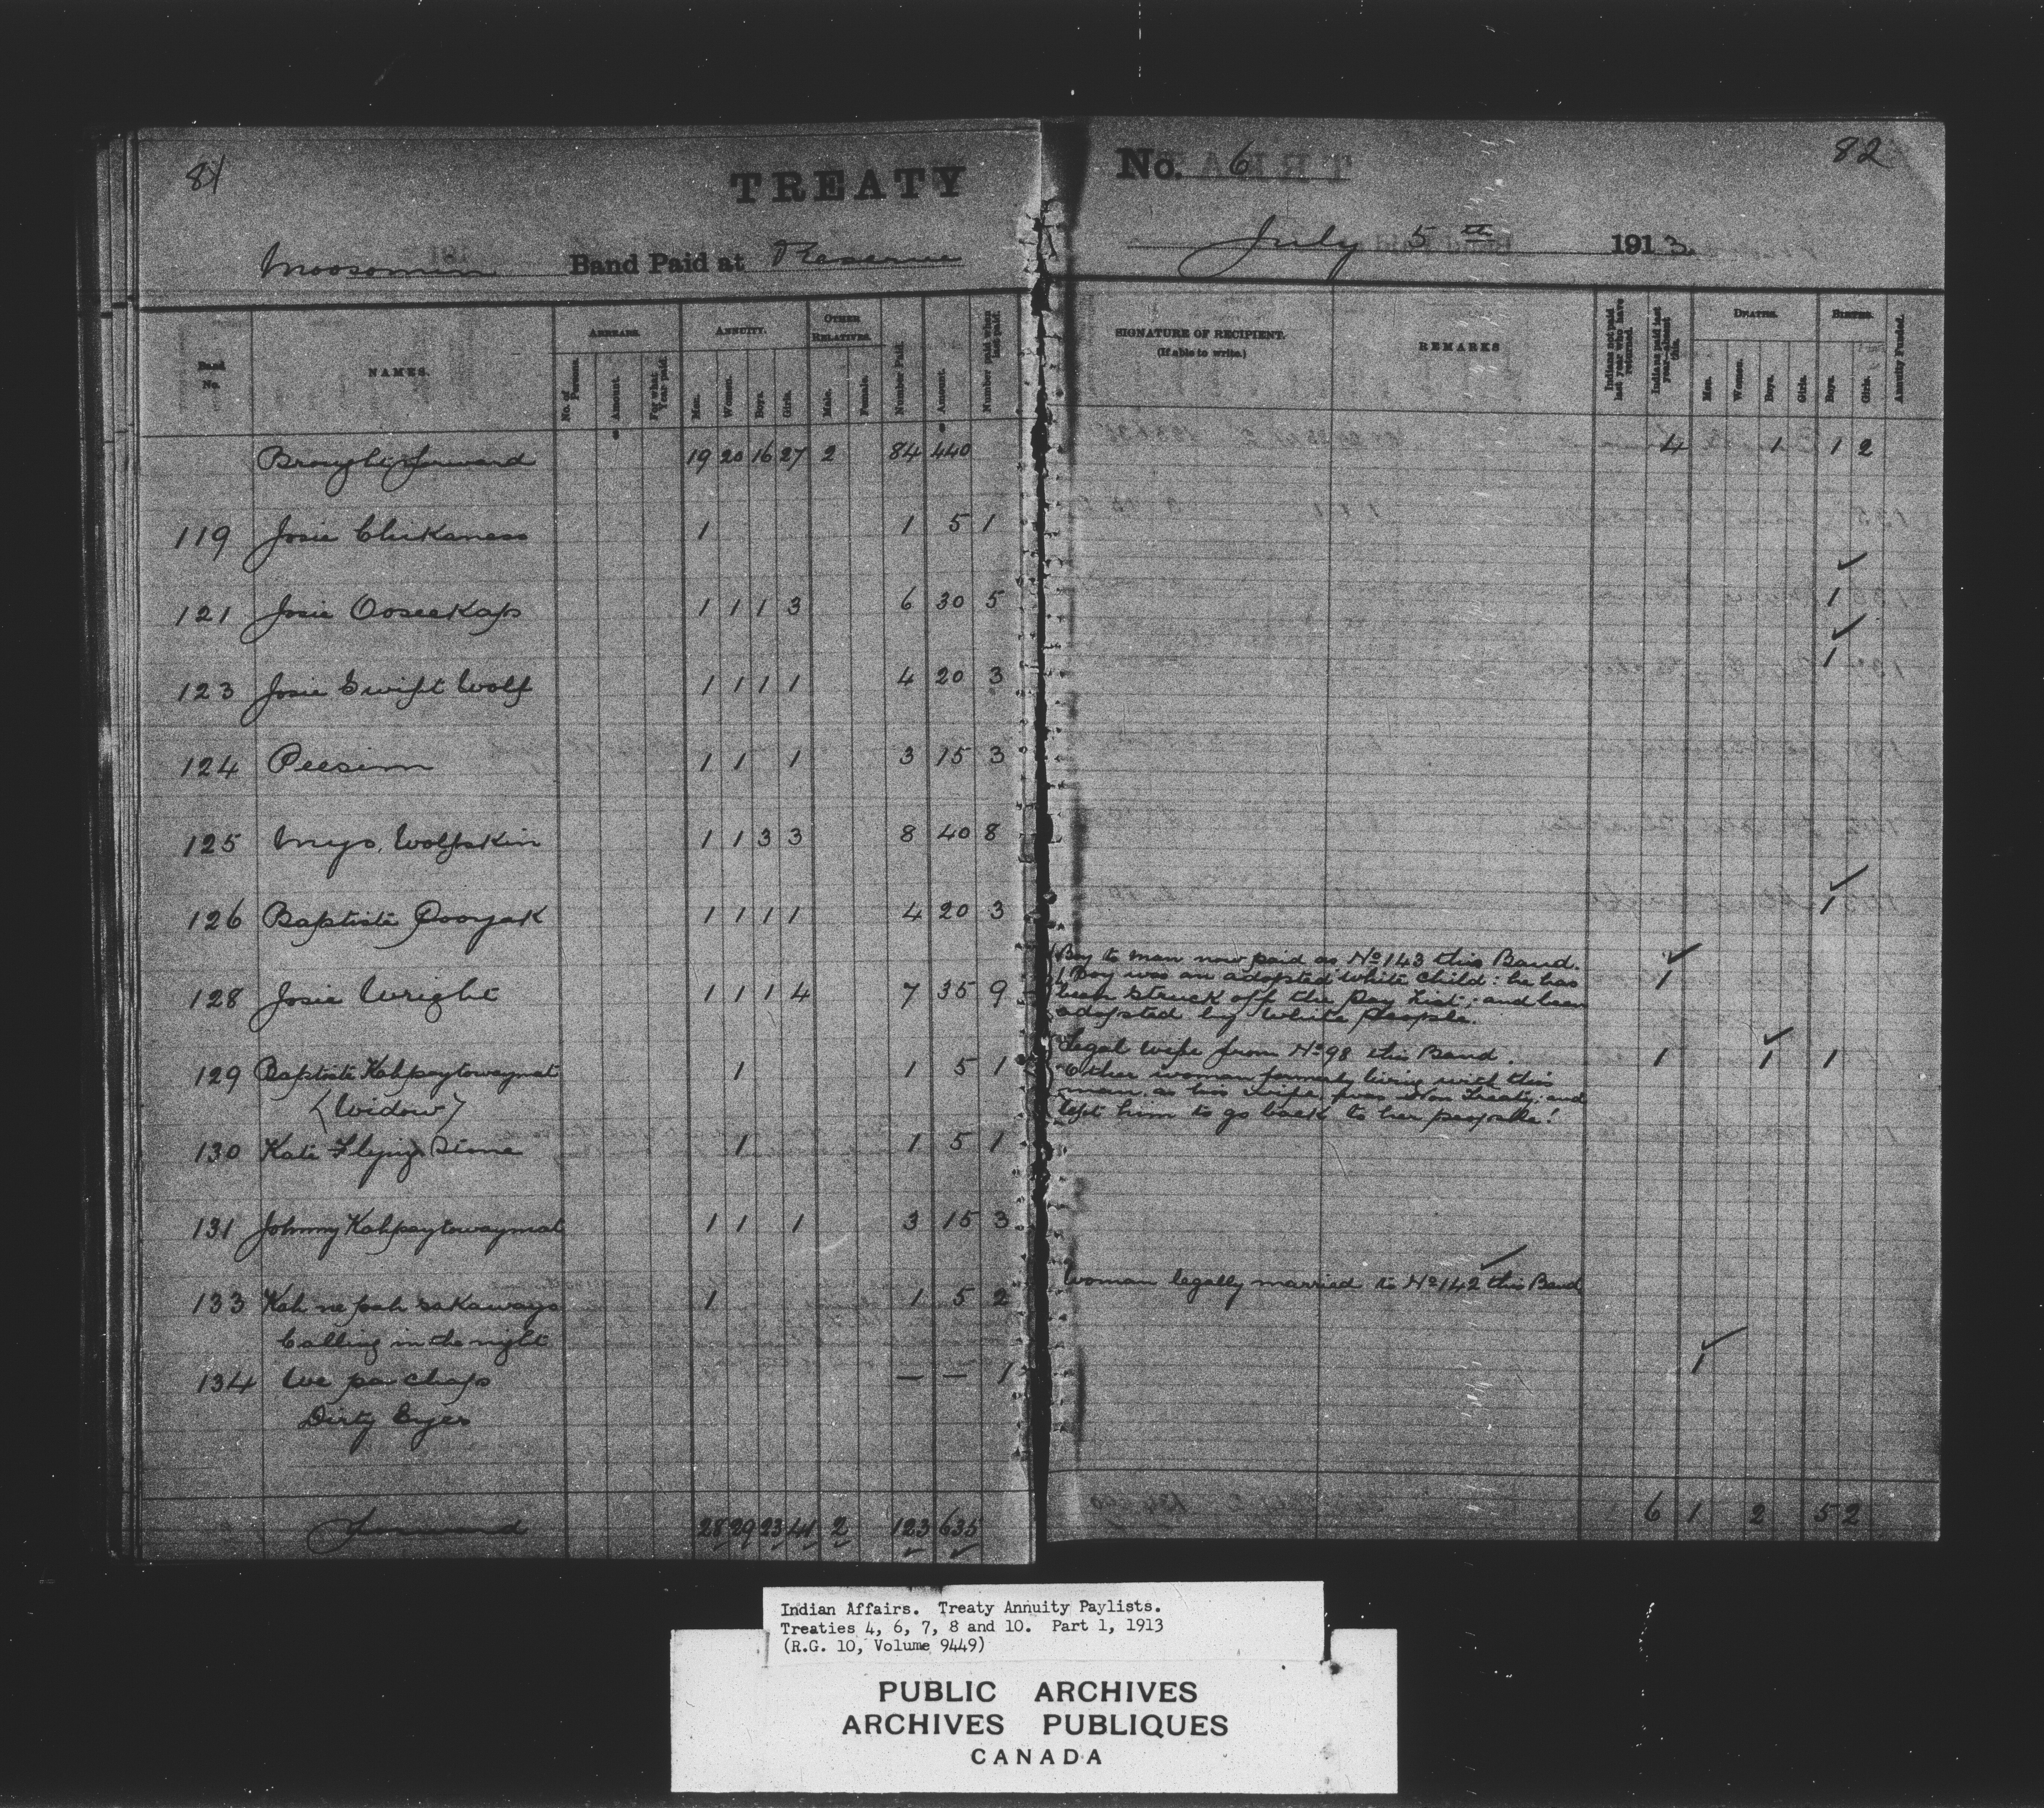 81
TREATY
No. 6
82
Moosomin Band Paid at Reserve
July 5th 1913.
Band No.
NAMES.
ARREARS.
No. of Persons.
Amount.
For what Year paid.
ANNUITY.
Men.
Women.
Boys.
Girls.
OTHER RELATIVES.
Male.
Female.
Number Paid.
Amount.
Number paid when last paid.
SIGNATURE OF RECIPIENT.
(If able to write.)
REMARKS
Indians not paid last year who have returned.
Indians paid last year—absent this.
DEATHS.
Men.
Women.
Boys.
Girls.
BIRTHS.
Boys.
Girls.
Annuity Funded.
Brought forward 19 20 16 27 2 84 440 4 1 1 2
119 Josie Chikaness 1 1 5 1
121 Josie Ooseekaps 1 1 1 3 6 30 5 1
123 Josie Swift Wolf 1 1 1 1 4 20 3 1
124 Peesim 1 1 1 3 15 3
125 Wolfskin 1 1 3 3 8 40 8
126 Baptiste Pooyak 1 1 1 1 4 20 3 1
128 Josie Wright 1 1 1 4 7 35 9
Boy to man now paid as No 143 this Band.
1 Boy was an adopted white child: he has
been struck off the Pay List; and been
adopted by white people.
1
129 Baptiste Kahpaytowaynat 1 1 5 1
(Widow)
Legal wife from No 98 this Band.
Other woman formerly living with this
man, as his wife, was Non Treaty; and
left him to go back to her people!
1 1 1
130 Kate Flying Stone 1 1 5 1
131 Johnny Kahpaytowaynat 1 1 1 3 15 3
133 Kah ne pah sakawayo 1 1 5 2
Calling in the night
Woman legally married to No 142 this Band
134 We pa chaps — — 1 1
Dirty Eyes
Forward 28 29 23 41 2 123 635 6 1 2 5 2
Indian Affairs. Treaty Annuity Paylists.
Treaties 4, 6, 7, 8 and 10. Part 1, 1913
(R.G. 10, Volume 9449)
PUBLIC ARCHIVES
ARCHIVES PUBLIQUES
CANADA